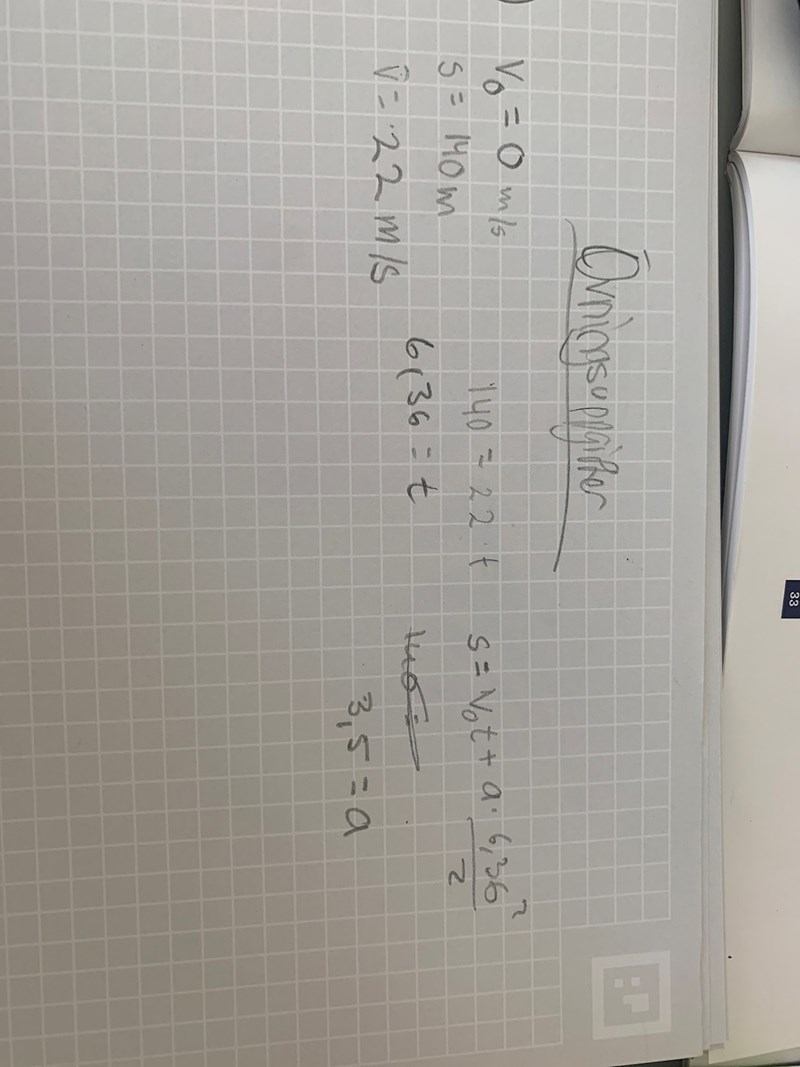 Övningsuppgifter
V₀ = 0 m/s
s = 140 m
v̄ = 22 m/s
140 = 22 · t
6,36 = t
s = V₀t + a · 6,36²
2
140 =
3,5 = a
33